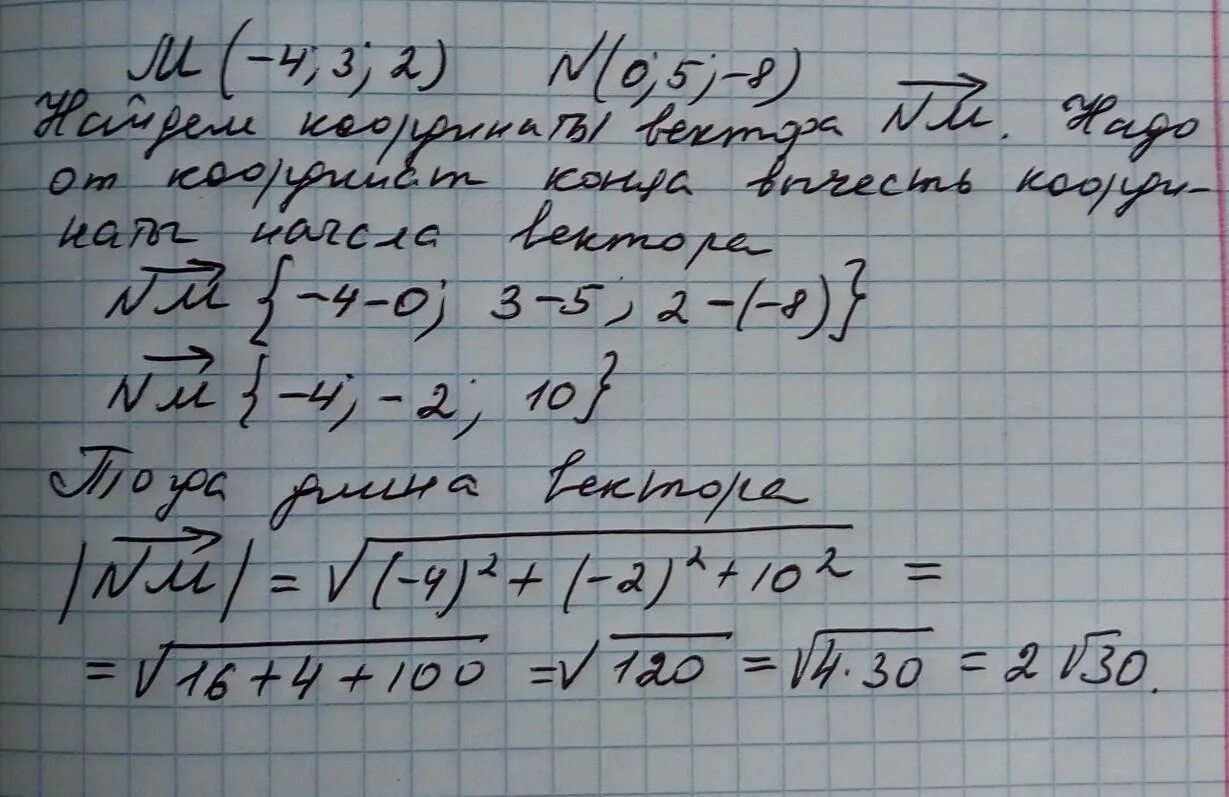 M (-4; 3; 2) N(0; 5; -8)
Найдем координаты вектора NM. Надо
от координат конца вычесть коорди-
наты начала вектора
NM {-4-0; 3-5; 2-(-8)}
NM {-4; -2; 10}
Тогда длина вектора
|NM| = √(-4)² + (-2)² + 10² =
= √16+4+100 = √120 = √4·30 = 2√30.